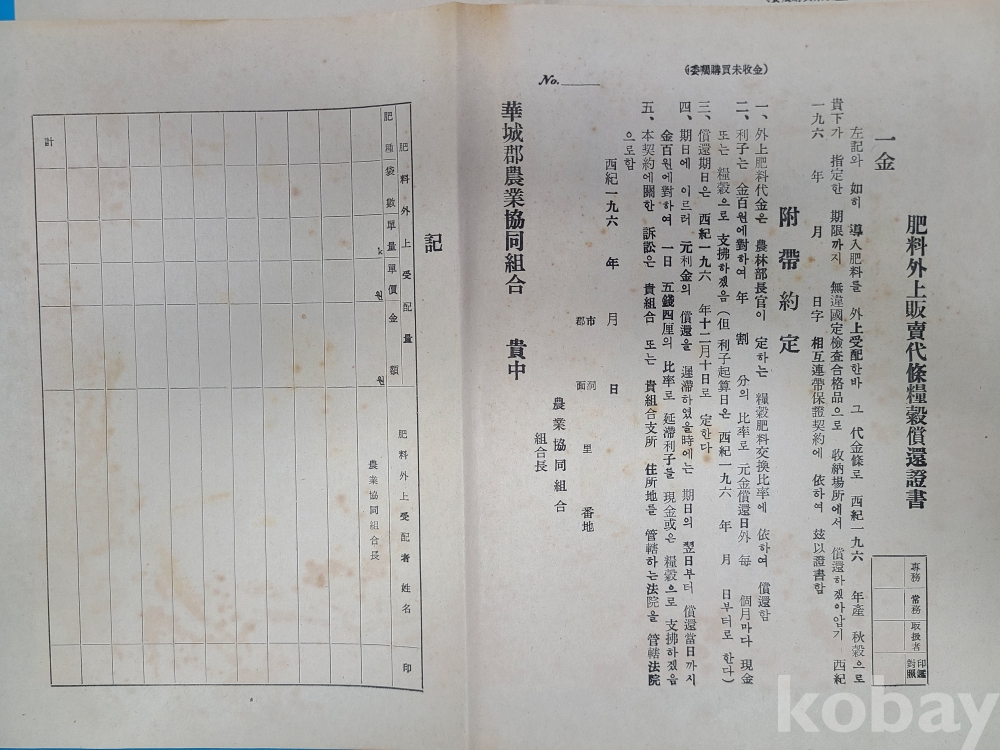 (委囑購買未收金)
No.
肥料外上販賣代條糧穀償還證書
專務
常務
取扱者
印鑑對照
一金
左記와 如히 導入肥料를 外上受配한바 그 代金條로 西紀一九六 年產 秋穀으로
貴下가 指定한 期限까지 無違國定檢査合格品으로 收納場所에서 償還하겠아압기 西紀
一九六 年 月 日字 相互連帶保證契約에 依하여 玆以證書함
附帶約定
一、外上肥料代金은 農林部長官이 定하는 糧穀肥料交換比率에 依하여 償還함
二、利子는 金百원에對하여 年 割 分의 比率로 元金償還日外 每 個月마다 現金
또는 糧穀으로 支拂하겠음 (但 利子起算日은 西紀一九六 年 月 日부터로 한다)
三、償還期日은 西紀一九六 年十二月十日로 定한다
四、期日에 이르러 元利金의 償還을 遲滯하였을時에는 期日의 翌日부터 償還當日까지
金百원에對하여 一日 五錢四厘의 比率로 延滯利子를 現金或은 糧穀으로 支拂하겠음
五、本契約에關한 訴訟은 貴組合 또는 貴組合支所 住所地를 管轄하는法院을 管轄法院
으로함
西紀一九六 年 月 日
市郡 洞面 里 番地
農業協同組合
組合長
華城郡農業協同組合 貴中
記
肥料外上受配量
肥種
袋數
單量 k
單價 원
金額 원
肥料外上受配者姓名 印
農業協同組合長
計
kobay